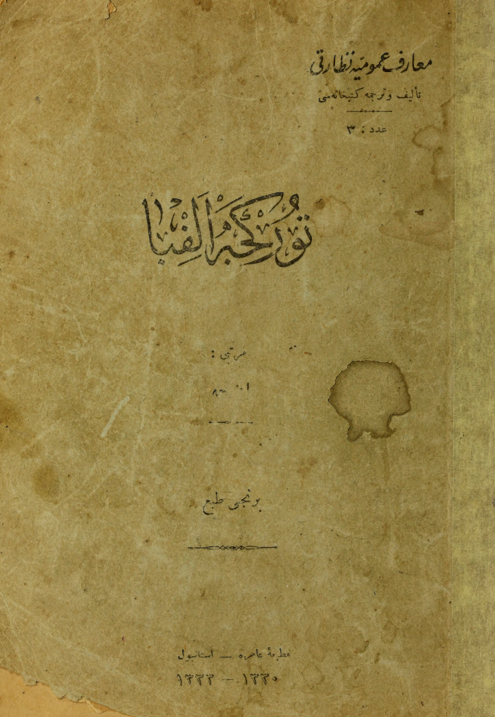 معارف عمومیه نظارتی
تألیف و ترجمه کتبخانه‌سی
عدد : ٣
تورکجه الفبا
مرتبی :
برنجی طبع
مطبعهٔ عامره — استانبول
١٣٣٥ — ١٣٣٣